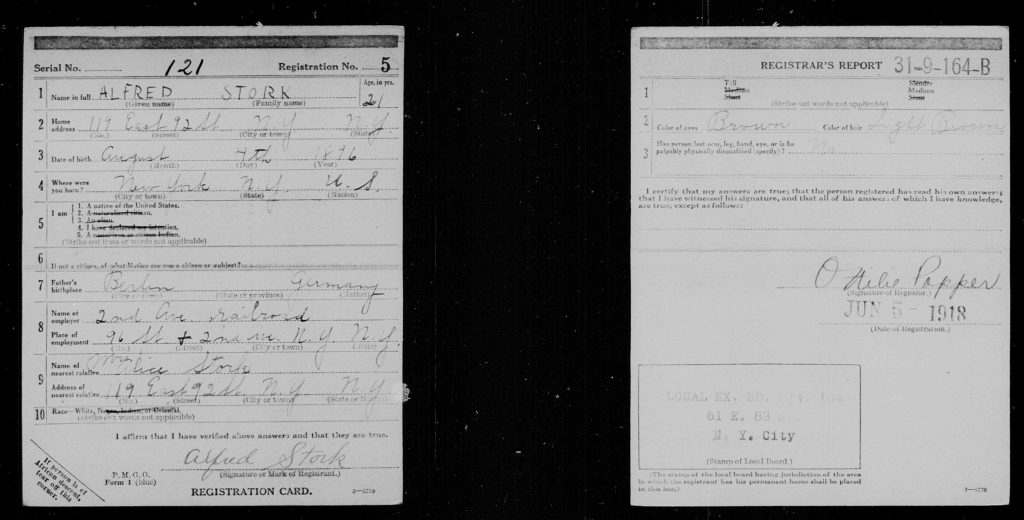 Serial No. 121 Registration No. 5
1 Name in full ALFRED STORK Age, in yrs. 21
(Given name) (Family name)
2 Home address 119 East 92 St N.Y. N.Y.
(No.) (Street) (City or town) (State)
3 Date of birth August 4th 1896
(Month) (Day) (Year)
4 Where were you born? New York N.Y. U.S.
(City or town) (State) (Nation)
5 I am
1. A native of the United States.
2. A naturalized citizen.
3. An alien.
4. I have declared my intention.
5. A noncitizen or citizen Indian.
(Strike out lines or words not applicable)
6 If not a citizen, of what Nation are you a citizen or subject?
7 Father's birthplace Berlin Germany
(City or town) (State or province) (Nation)
8 Name of employer 2nd Ave Railroad
Place of employment 96 St + 2nd Ave. N.Y. N.Y.
(No.) (Street) (City or town) (State)
9 Name of nearest relative Mrs Alice Stork
Address of nearest relative 119 East 92 St N.Y. N.Y.
(No.) (Street) (City or town) (State or Nation)
10 Race—White, Negro, Indian, or Oriental.
(Strike out words not applicable)
I affirm that I have verified above answers and that they are true.
Alfred Stork
P. M. G. O.
Form 1 (blue)
(Signature or Mark of Registrant.)
REGISTRATION CARD.
3—5739
If person is of
African descent,
tear off this
corner.
REGISTRAR'S REPORT 31-9-164-B
1 Tall Slender
Medium Medium
Short Stout
(Strike out words not applicable)
2 Color of eyes Brown Color of hair Light Brown
3 Has person lost arm, leg, hand, eye, or is he
palpably physically disqualified (specify)? No
I certify that my answers are true; that the person registered has read his own answers;
that I have witnessed his signature, and that all of his answers of which I have knowledge,
are true, except as follows:
Ottilie Popper
(Signature of Registrar.)
JUN 5 - 1918
(Date of Registration.)
LOCAL EX. BD.
51 E. 83
N. Y. City
(Stamp of Local Board.)
(The stamp of the local board having jurisdiction of the area
in which the registrant has his permanent home shall be placed
in this box.)
3—5739